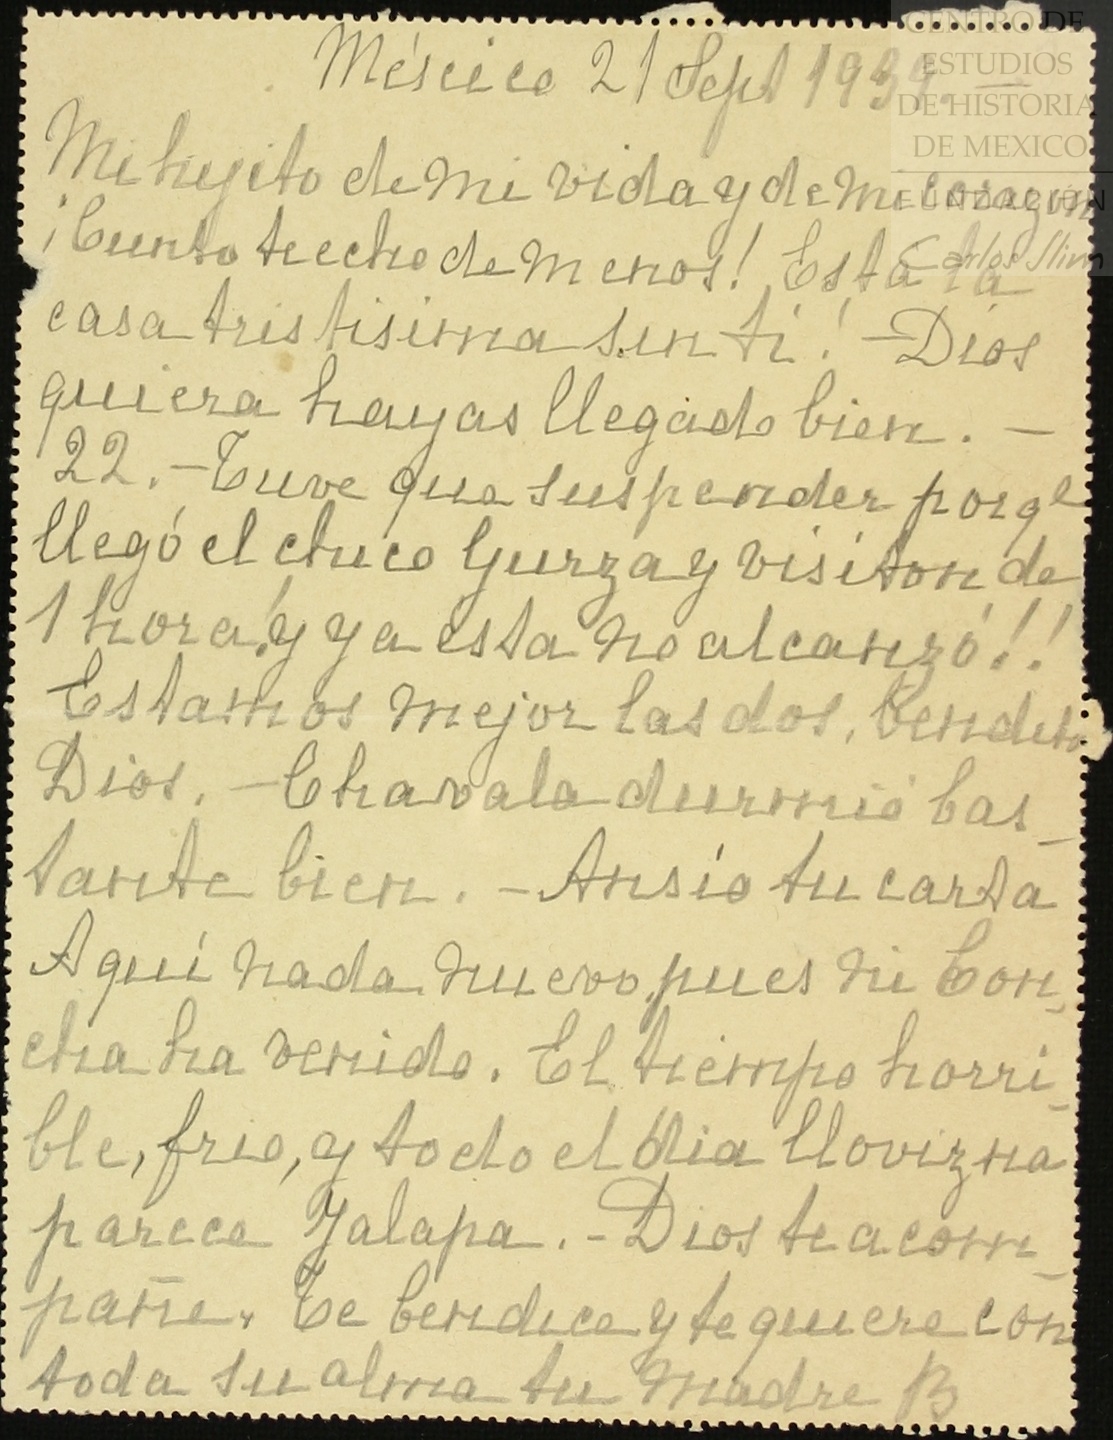 México 21 Sept 1939.—
CENTRO DE
ESTUDIOS
DE HISTORIA
DE MEXICO
FUNDACIÓN
Carlos Slim
Mi hijito de mi vida y de mi corazon
¡Cunto te echo de menos! Está la
casa tristisima sin ti! —Dios
quiera hayas llegado bien. —
22. —Tuve que suspender porqe
llegó el chico Gurza y visiton de
1 hora! y ya esta no alcanzó!!
Estamos mejor las dos, bendito
Dios. —Chavala durmió bas_
tante bien. —Ansío tu carta
Aquí nada nuevo, pues ni Con_
cha ha venido. El tiempo horri_
ble, frio, y todo el dia llovizna
parece Jalapa. —Dios te acom_
pañe. Te bendice y te quiere con
toda su alma tu Madre B